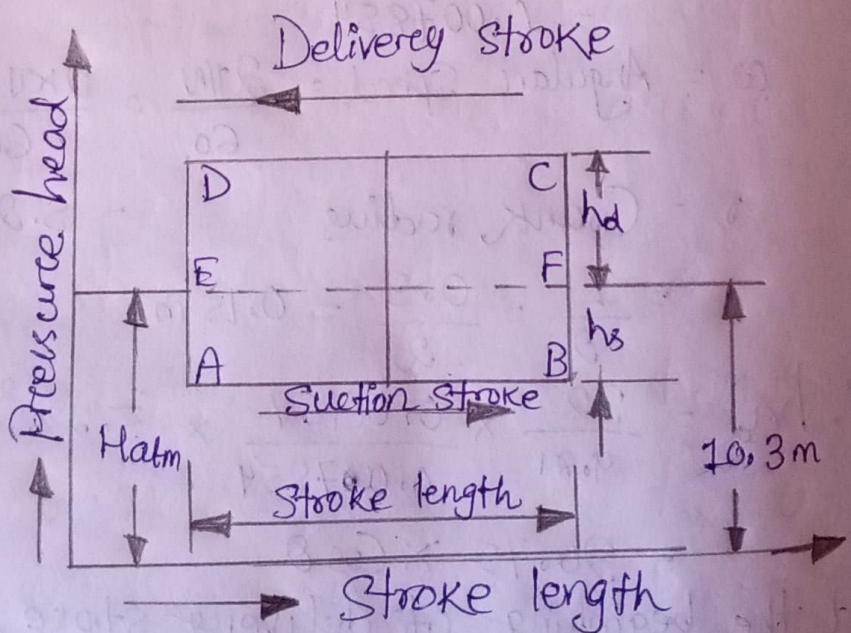 Deliverey stroke
Preessurce head
D
C
hd
E
F
hs
A
B
Suction Stroke
Hatm
10.3m
Stroke length
Stroke length